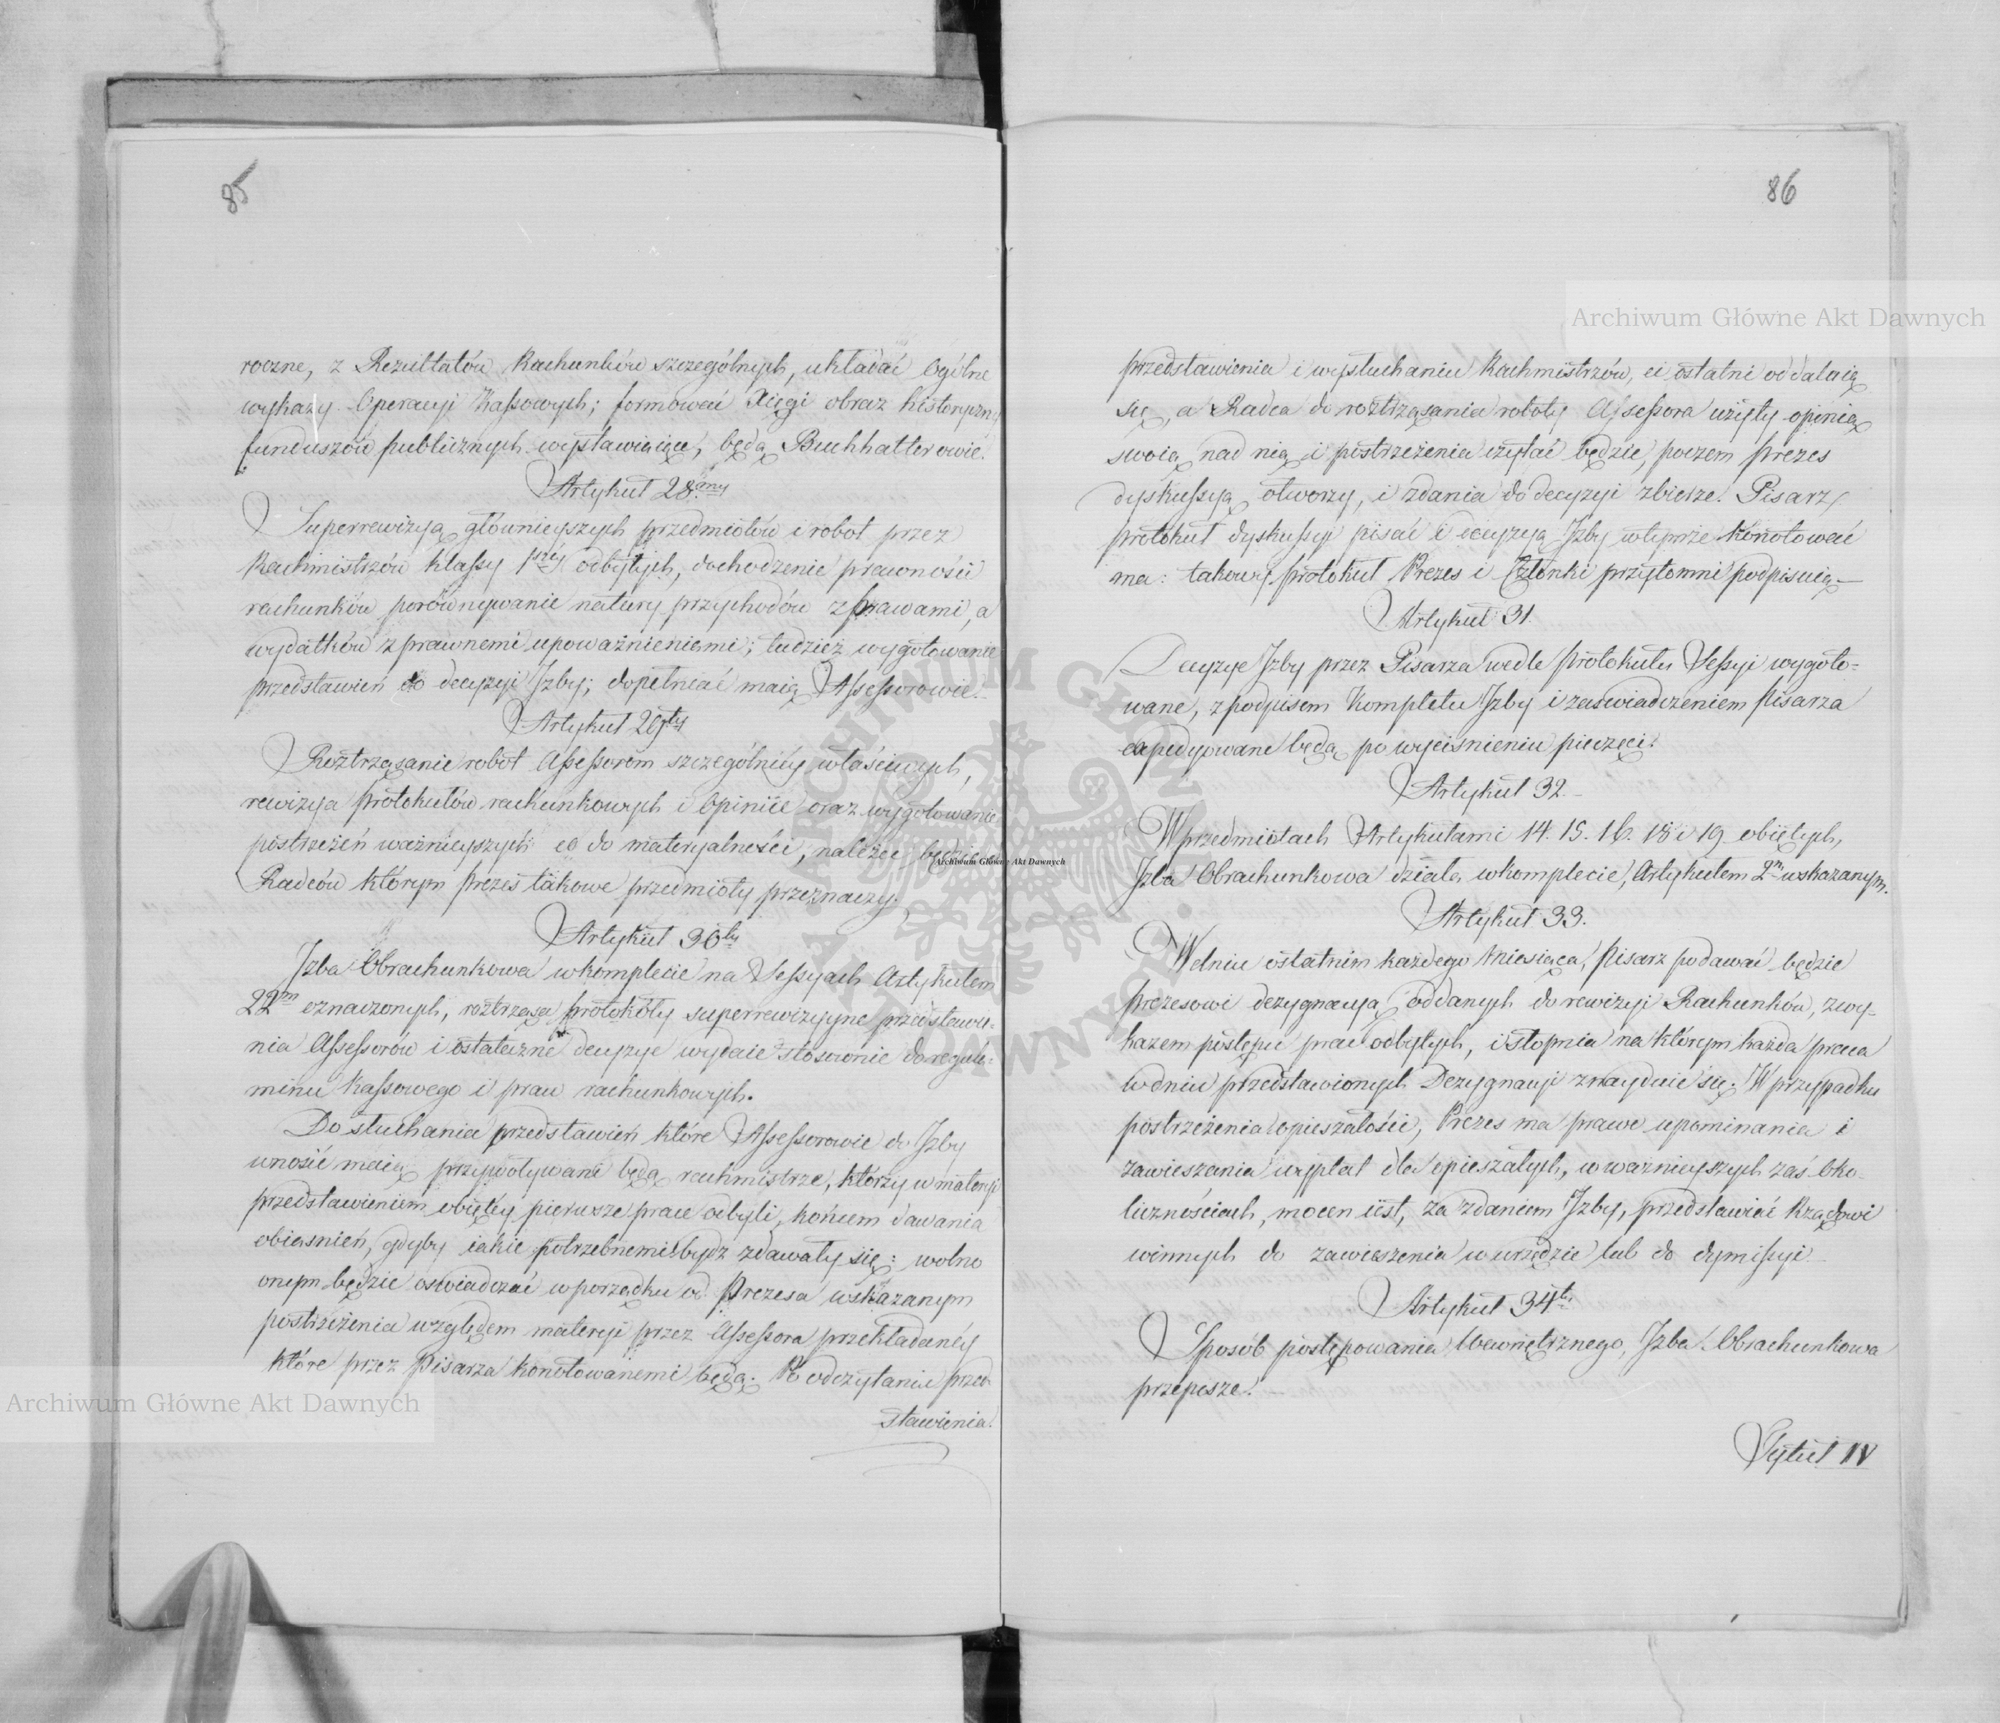 85
roczne, z Rezultatów Rachunków szczególnych, układać Ogólne
wykazy Operacyi Kassowych; formować Xięgi obraz historyczny
funduszów publicznych wystawiaiące, będą Buchhalterowie.
Artykuł 28.any
Superrewizyą główniejszych przedmiotów i robot przez
Rachmistrzów klassy 1szej odbytych, dochodzenie prawności
rachunków porównywanie natury przychodów z prawami, a
wydatków z prawnemi upoważnieniami; tudzież wygotowanie
przedstawień do decyzyi Izby; dopełniać maią Assessorowie.
Artykuł 29ty
Roztrząsanie robot Assessorom szczególniey właściwych,
rewizya protokułów rachunkowych i Opiniie oraz wygotowanie
postrzeżeń ważnieyszych co do materyalności, należeć będzie do
Radców którym prezes takowe przedmioty przeznaczy.
Artykuł 30ty
Izba Obrachunkowa w komplecie na Sessyach Artykułem
22m oznaczonych, roztrząsa protokóły superrewizyyne przedstawie-
nia Assessorów i ostateczne decyzye wydaie stosownie do regula-
minu Kassowego i praw rachunkowych.
Do słuchania przedstawień które Assessorowie do Izby
wnosić maią przywoływani będą rachmistrze, którzy w materyi
przedstawieniem obiętey pierwsze prace odbyli, końcem dawania
obiasnień, gdyby iakie potrzebnemi bydź zdawały się; wolno
onym będzie oswiadczać w porządku od Prezesa wskazanym
postrzeżenia względem materyi przez Assessora przekładaney
które przez Pisarza konotowanemi będą. Po odczytaniu przed-
stawienia.
86
przedstawienia i wysłuchaniu Rachmistrzów, ci ostatni oddalaią
się, a Radca do roztrząsania roboty Assessora użyty opinią
swoią nad nią i postrzeżenia czytać będzie, poczem prezes
dyskussyą otworzy, i zdania do decyzyi zbierze. Pisarz
protokuł dyskussyi pisać i decyzyą Izby wtymże konotować
ma: takowy protokuł Prezes i Członki przytomni podpisuią.—
Artykuł 31.
Decyzye Izby przez Pisarza wedle protokułu Sessyi wygoto-
wane, z podpisem Kompletu Izby i zaswiadczeniem Pisarza
expedyowane będą po wyciśnieniu pieczęci.
Artykuł 32.—
W przedmiotach Artykułami 14. 15. 16. 18 i 19 obiętych,
Izba Obrachunkowa działa w komplecie, Artykułem 2m wskazanym.
Artykuł 33.
W dniu ostatnim każdego miesiąca, Pisarz podawać będzie
prezesowi dezygnacyą oddanych do rewizyi Rachunków, z wy-
kazem postępu prac odbytych, i stopnia na którym każda praca
w dniu przedstawionych Dezygnacyi znayduie się. W przypadku
postrzeżenia opieszałości, Prezes ma prawo upominania i
zawieszania wypłat dla opieszałych, w ważnieyszych zaś oko-
licznościach, mocen iest, za zdaniem Izby, przedstawiać Rządowi
winnych do zawieszenia w urzędzie lub do dymissyi—
Artykuł 34ty
Sposób postępowania Wewnętrznego, Izba Obrachunkowa
przepisze.
Tytuł IV
Archiwum Główne Akt Dawnych
Archiwum Główne Akt Dawnych
Archiwum Główne Akt Dawnych
ARCHIWUM GŁÓWNE AKT DAWNYCH